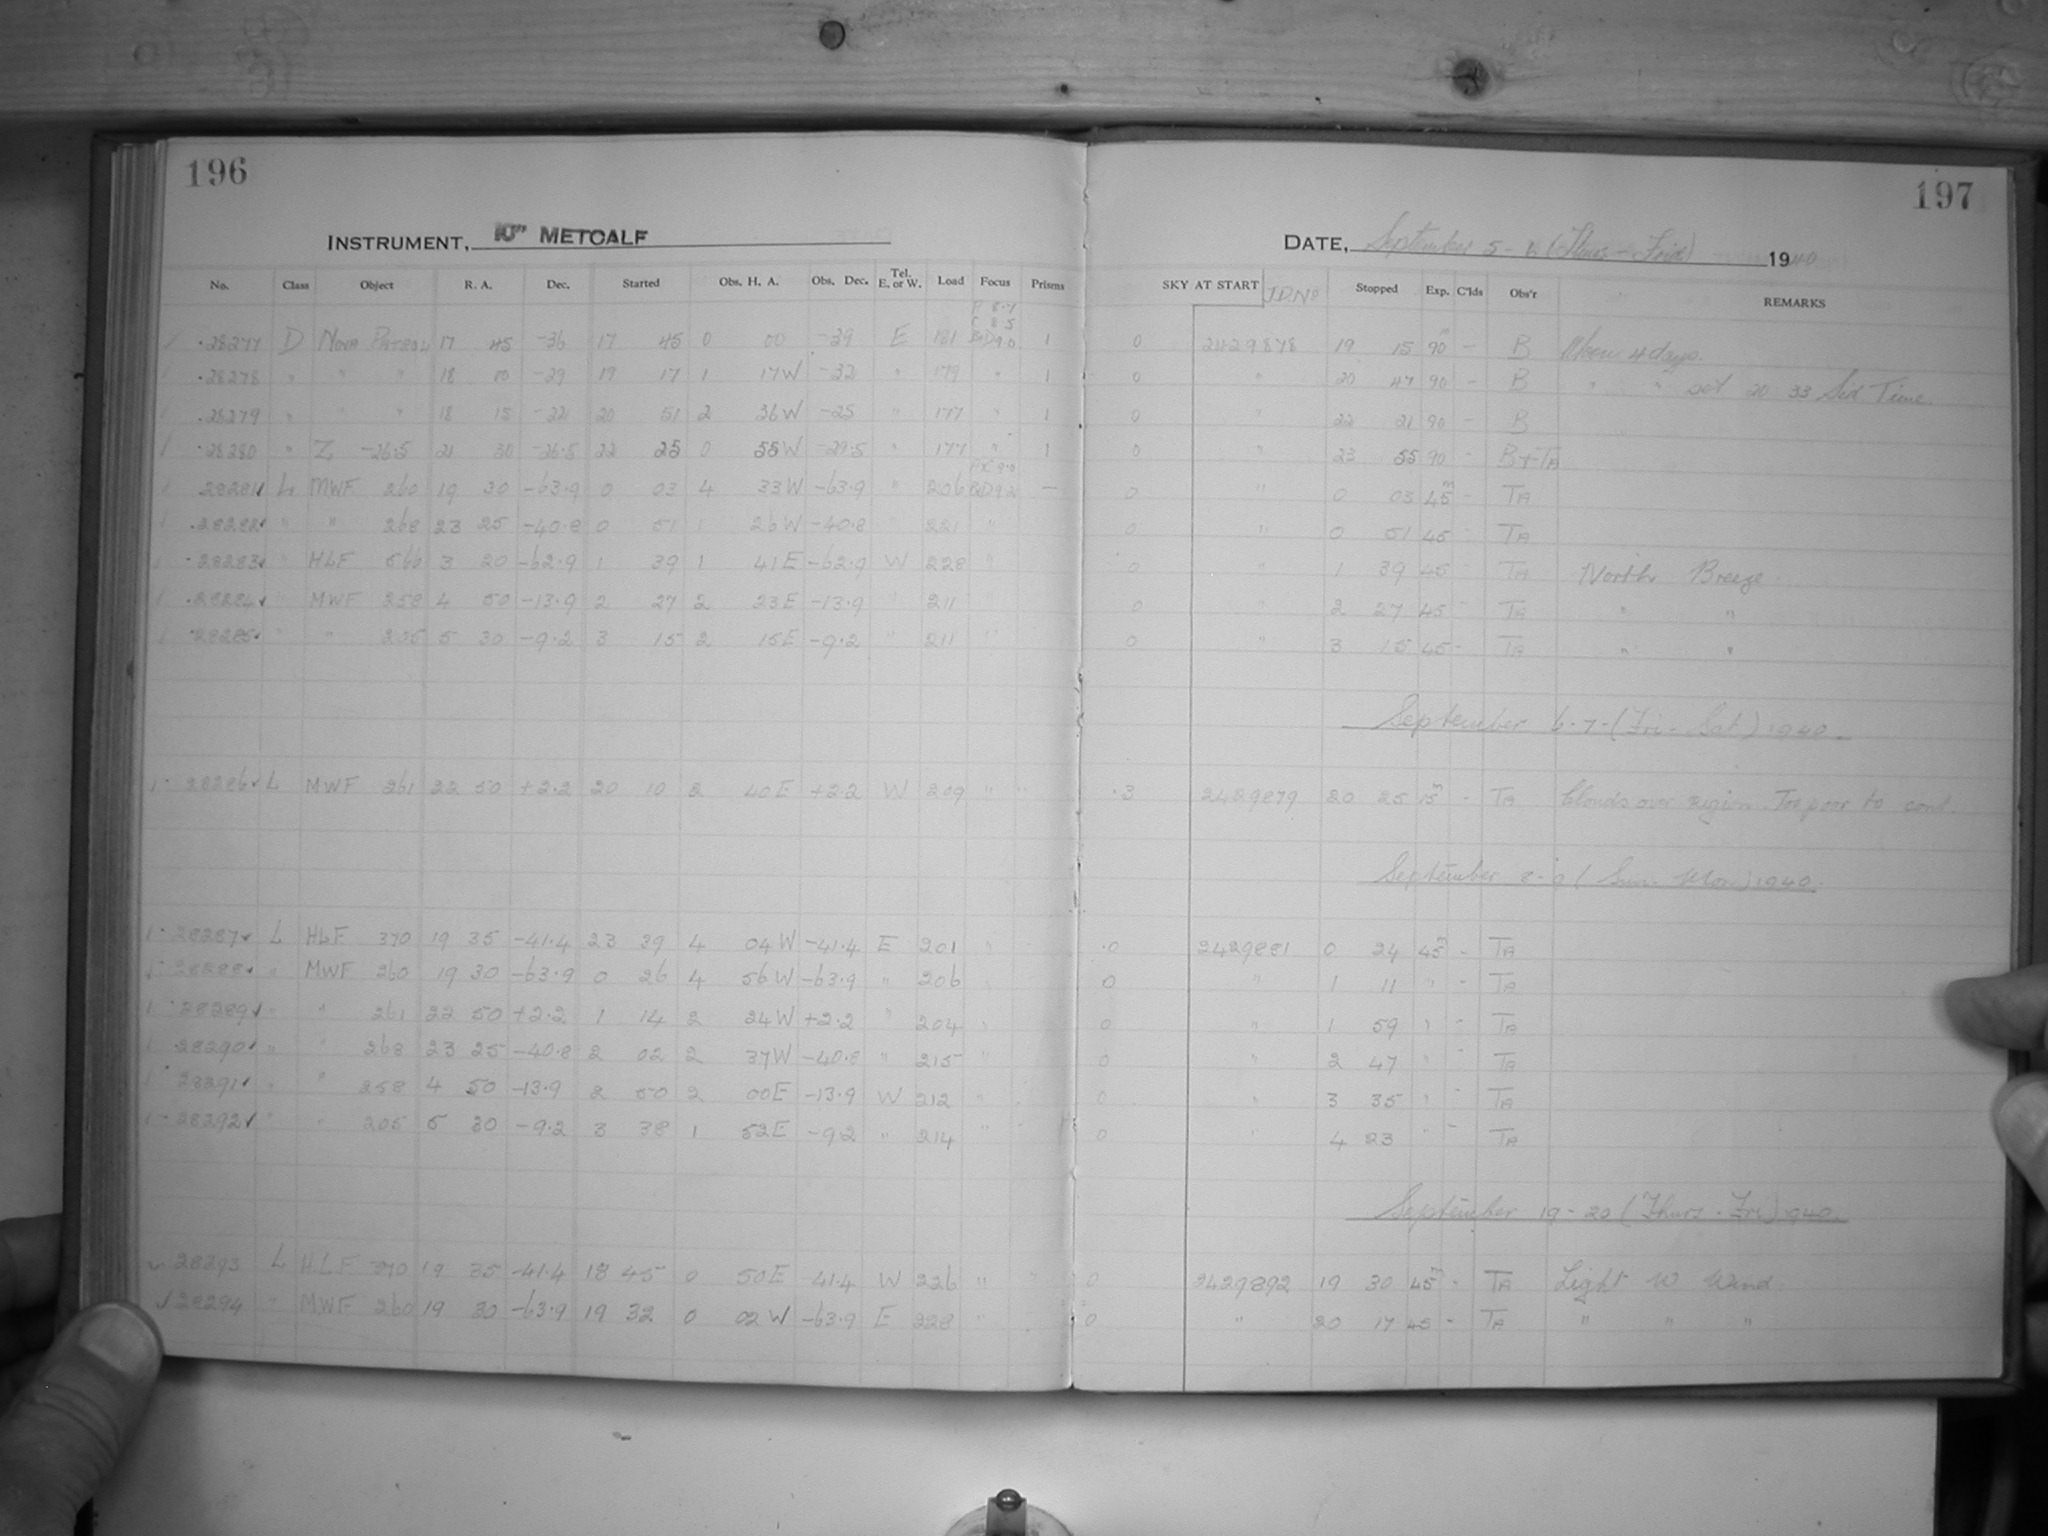 196
INSTRUMENT, 10" METCALF
No. Class Object R. A. Dec. Started Obs. H. A. Obs. Dec. Tel. E. or W. Load Focus Prisms
28277 D NOVA PATROL 17 45 -36 17 45 0 00 -39 E 181 BD 9.0 1
28278 " " " 18 00 -29 19 17 1 17W -32 " 179 " 1
28279 " " " 18 15 -22 20 51 2 36W -25 " 177 " 1
28280 " Z -26.5 21 30 -26.5 22 25 0 55W -29.5 " 177 " 1
28281 L MWF 260 19 30 -63.9 0 03 4 33W -63.9 " 206 BD 9.2 —
28282 " " 268 23 25 -40.8 0 51 1 26W -40.8 " 221 "
28283 " HLF 566 3 20 -62.9 1 39 1 41E -62.9 W 228 "
28284 " MWF 258 4 50 -13.9 2 27 2 23E -13.9 " 211 "
28285 " " 205 5 30 -9.2 3 15 2 15E -9.2 " 211 "
28286 L MWF 261 22 50 +2.2 20 10 2 40E +2.2 W 209 " "
28287 L HLF 370 19 35 -41.4 23 39 4 04W -41.4 E 201 "
28288 " MWF 260 19 30 -63.9 0 26 4 56W -63.9 " 206 "
28289 " " 261 22 50 +2.2 1 14 2 24W +2.2 " 204 "
28290 " " 268 23 25 -40.8 2 02 2 37W -40.8 " 215 "
28291 " " 258 4 50 -13.9 2 50 2 00E -13.9 W 212 "
28292 " " 205 5 30 -9.2 3 38 1 52E -9.2 " 214 "
28293 L HLF 370 19 35 -41.4 18 45 0 50E -41.4 W 226 " "
28294 " MWF 260 19 30 -63.9 19 32 0 02W -63.9 E 228 "
197
DATE, September 5-6 (Thurs - Frid) 1940
SKY AT START J.D. No Stopped Exp. C'lds Obs'r REMARKS
0 2429878 19 15 90m - B Moon 4 days.
0 " 20 47 90 - B " " set 20 33 Sid Time.
0 " 22 21 90 - B
0 " 23 55 90 - B+TA
0 " 0 03 45m - TA
0 " 0 51 45 - TA
0 " 1 39 45 - TA North Breeze.
0 " 2 27 45 - TA " "
0 " 3 15 45 - TA " "
September 6-7-(Fri-Sat) 1940.
.3 2429879 20 25 15m - TA Clouds over region. Too poor to cont.
September 8-9 (Sun-Mon) 1940.
0 2429881 0 24 45m - TA
0 " 1 11 " - TA
0 " 1 59 " - TA
0 " 2 47 " - TA
0 " 3 35 " - TA
0 " 4 23 " - TA
September 19-20 (Thurs-Fri) 1940.
0 2429892 19 30 45m - TA Light W Wind.
0 " 20 17 45 - TA " " "